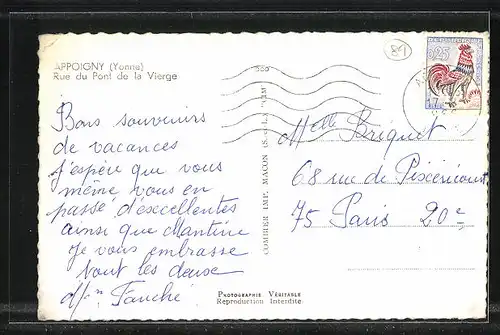 APPOIGNY (Yonne)
Rue du Pont de la Vierge
89
0,25
Bons souvenirs
de vacances
j'espère que vous
même vous en
passé d'éxcellentes
ainsi que Mantine
Je vous embrasse
tout les deuse
Fauché
COMBIER IMP. MACON (S.-&-L.) "CIM"
Melle Briquet
68 rue de Pixérécourt
75 Paris 20e
PHOTOGRAPHIE VÉRITABLE
Reproduction Interdite